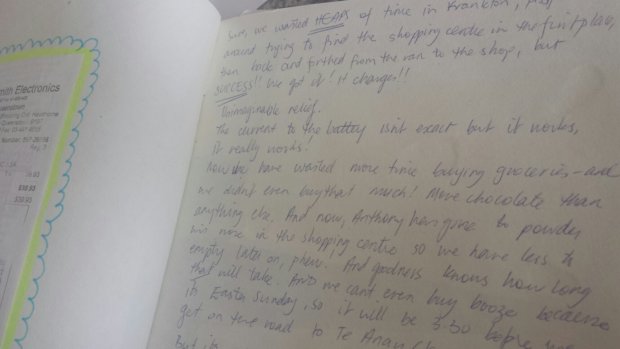 mith Electronics
Queenstown
Hawthorne
Frankton : 9197
Fax: 03-441
Number: 897-
$39.93
$39.93
Sure, we wasted HEAPS of time in Frankton,
around trying to find the shopping centre in the first place,
then back and forthed from the van to the shop, but
SUCCESS!! We got it! It charges!!
Unimaginable relief.
The current to the battery isn't exact but it works,
it really works!
Now we have wasted more time buying groceries - and
we didn't even buy that much! More chocolate than
anything else. And now, Anthony has gone to powder
his nose in the shopping centre so we have less to
empty later on, phew! And goodness knows how long
that will take. And we can't even buy booze because
it's Easter Sunday, so it will be 3.30 before we
get on the road to Te Anau
But it's